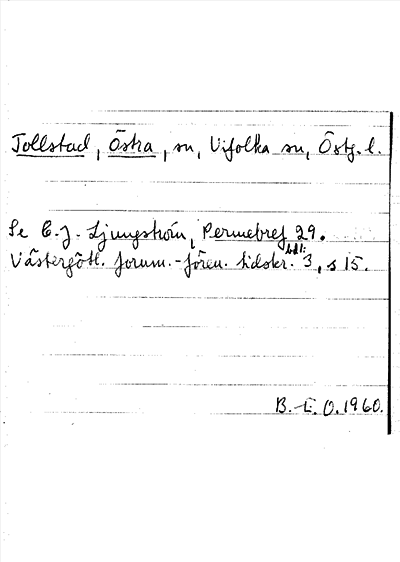 Tollstad, Östra, sn, Vifolka sn, Östg. l.
Se C. J. Ljungström, Permebref 29.
Västergötl. fornm.-fören. tidskr. bd 1: 3, s 15.
B. E. O. 1960.